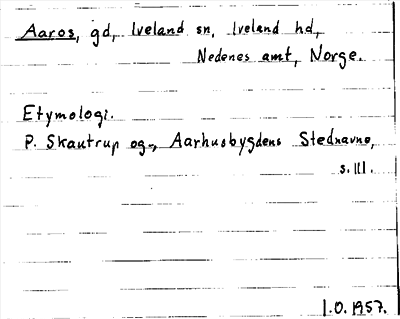 Aaros, gd, Iveland sn, Iveland hd,
Nedenes amt, Norge.
Etymologi.
P. Skautrup og-, Aarhusbygdens Stednavne,
s. III.
I.O. 1957.